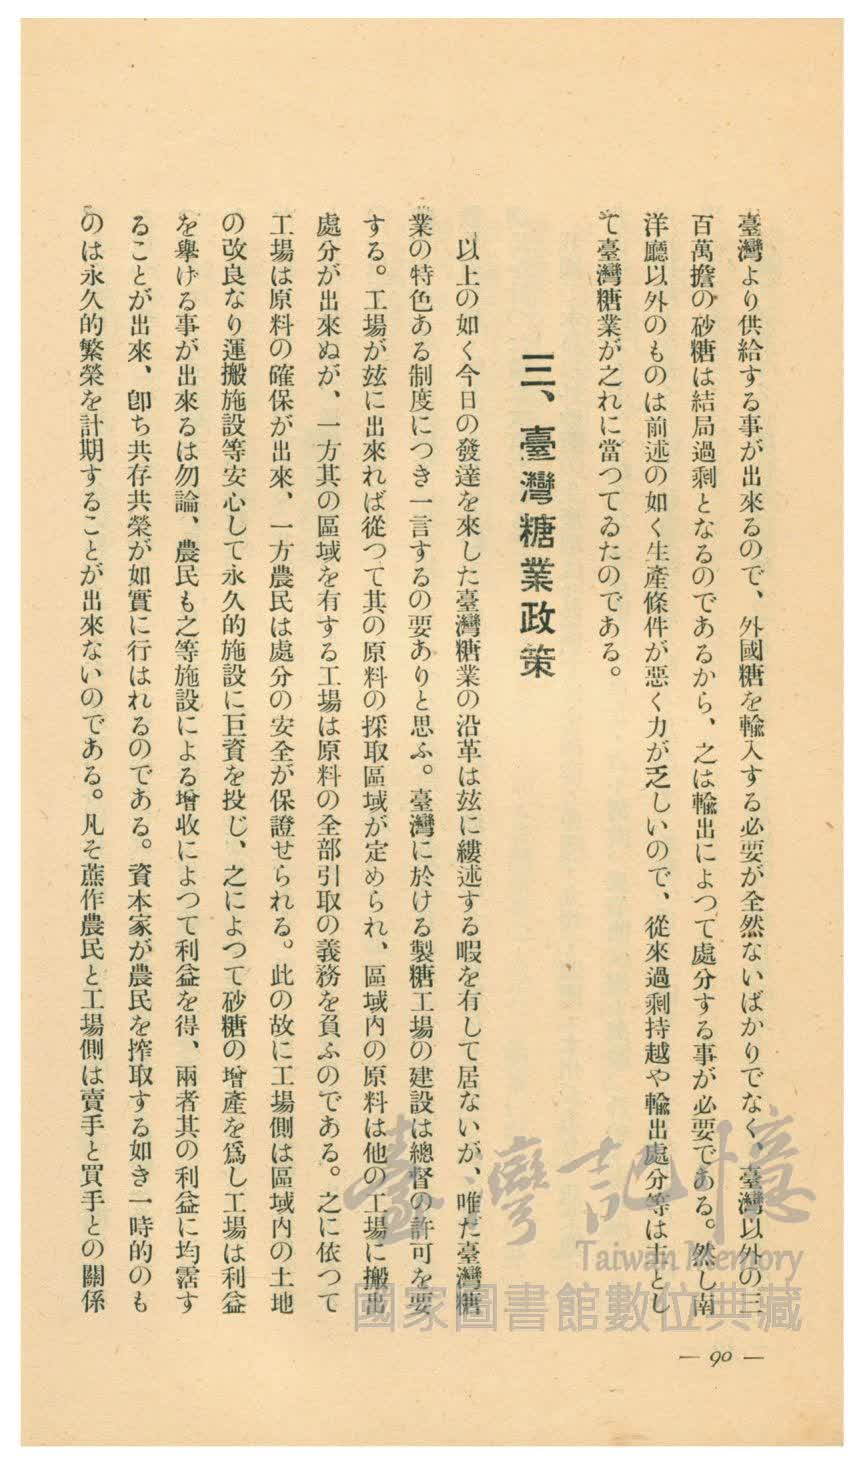 臺灣より供給する事が出來るので、外國糖を輸入する必要が全然ないばかりでなく、臺灣以外の三
百萬擔の砂糖は結局過剩となるのであるから、之は輸出によつて處分する事が必要である。然し南
洋廳以外のものは前述の如く生產條件が惡く力が乏しいので、從來過剩持越や輸出處分等は主とし
て臺灣糖業が之れに當つてゐたのである。
三、臺灣糖業政策
以上の如く今日の發達を來した臺灣糖業の沿革は玆に縷述する暇を有して居ないが、唯だ臺灣糖
業の特色ある制度につき一言するの要ありと思ふ。臺灣に於ける製糖工場の建設は總督の許可を要
する。工場が玆に出來れば從つて其の原料の採取區域が定められ、區域内の原料は他の工場に搬出
處分が出來ぬが、一方其の區域を有する工場は原料の全部引取の義務を負ふのである。之に依つて
工場は原料の確保が出來、一方農民は處分の安全が保證せられる。此の故に工場側は區域内の土地
の改良なり運搬施設等安心して永久的施設に巨資を投じ、之によつて砂糖の增產を爲し工場は利益
を擧げる事が出來るは勿論、農民も之等施設による增收によつて利益を得、兩者其の利益に均霑す
ることが出來、卽ち共存共榮が如實に行はれるのである。資本家が農民を搾取する如き一時的のも
のは永久的繁榮を計期することが出來ないのである。凡そ蔗作農民と工場側は賣手と買手との關係
— 90 —
臺灣記憶
Taiwan Memory
國家圖書館數位典藏